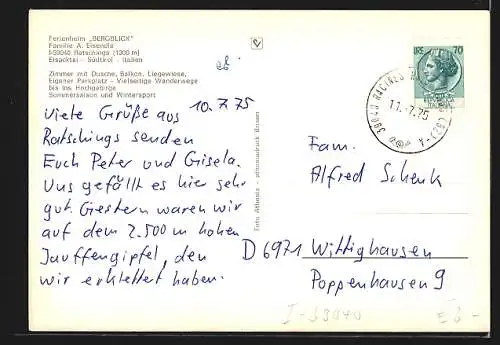 Ferienheim „BERGBLICK"
Familie A. Eisendle
I-39040 Ratschings (1300 m)
Eisacktal - Südtirol - Italien
Zimmer mit Dusche, Balkon, Liegewiese,
Eigener Parkplatz - Vielseitige Wanderwege
bis ins Hochgebirge
Sommersaison und Wintersport
10.7.75
Viele Grüße aus
Ratschings senden
Euch Peter und Gisela.
Uns gefällt es hier sehr
gut. Gestern waren wir
auf dem 2.500 m hohen
Jauffengipfel, den
wir erklettert haben.
Foto Athesia
LIRE 70
11.-7.75
Fam.
Alfred Schenk
D 6971 Wittighausen
Poppenhausen 9
I-39040